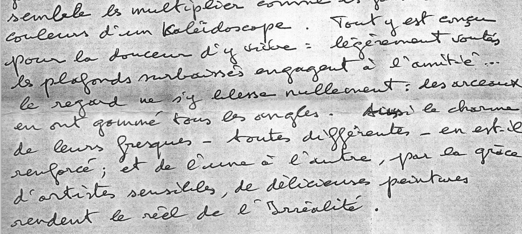 semble les multiplier comme
couleurs d'un Kaléïdoscope. Tout y est conçu
pour la douceur d'y vivre : légèrement voutés
les plafonds surbaissés engagent à l'amitié...
le regard ne s'y blesse nullement : des arceaux
en ont gommé tous les angles. Aussi le charme
de leurs fresques - toutes différentes - en est-il
renforcé ; et de l'une à l'autre, par la grâce
d'artistes sensibles, de délicieuses peintures
rendent le réel de l'Irréalité.